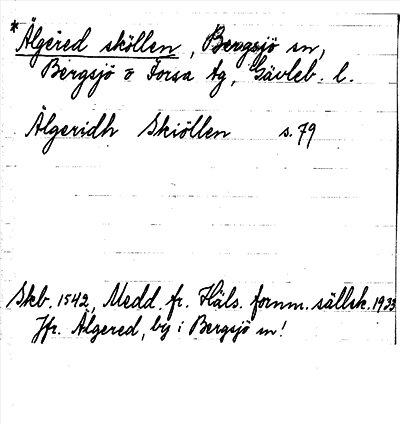 *Älgered sköllen, Bergsjö sn,
Bergsjö o Forsa tg, Gävleb. l.
Älgeridh Skiöllen s. 79
Skb. 1542, Medd. fr. Häls. fornm. sällsk. 1933
Jfr. Älgered, by i Bergsjö sn!